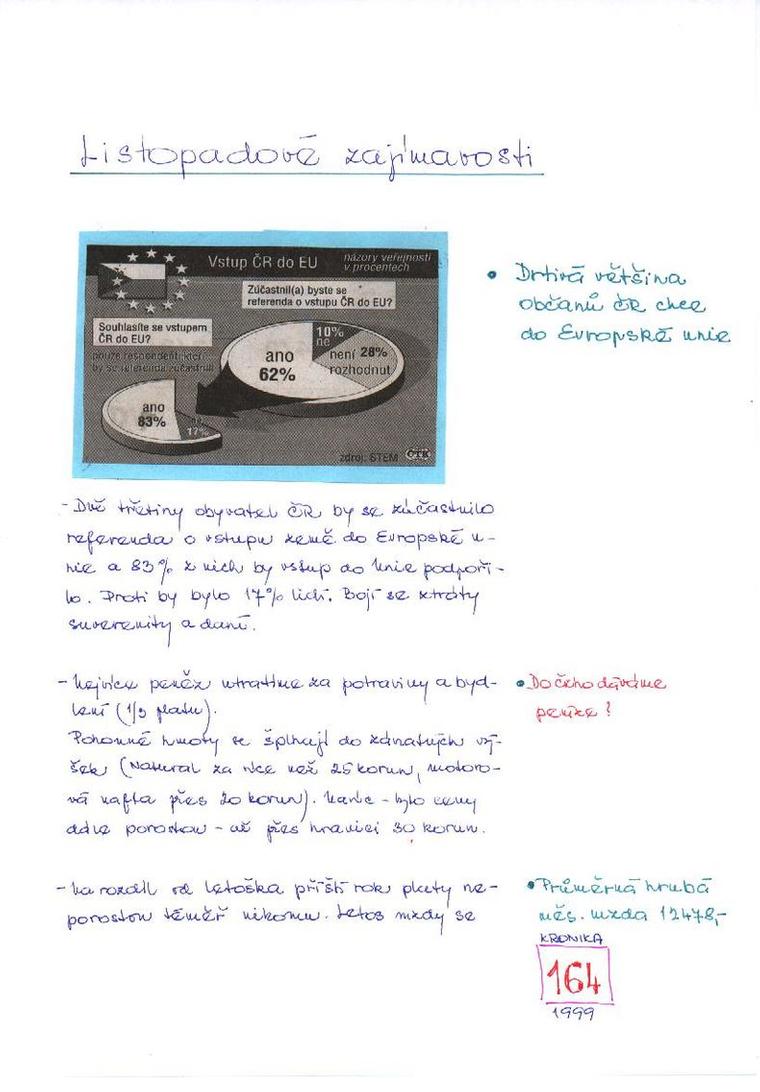 Listopadové zajímavosti
Vstup ČR do EU
názory veřejnosti
v procentech
Zúčastnil(a) byste se
referenda o vstupu ČR do EU?
Souhlasíte se vstupem
ČR do EU?
pouze respondenti, kteří
by se referenda zúčastnili
10%
ne
ano
62%
není 28%
rozhodnut
ano
83%
ne
17%
zdroj: STEM
ČTK
• Drtivá většina
občanů ČR chce
do Evropské unie
- Dvě třetiny obyvatel ČR by se zúčastnilo
referenda o vstupu země do Evropské u-
nie a 83% z nich by vstup do Unie podpoři-
lo. Proti by bylo 17% lidí. Bojí se ztráty
suverenity a daní.
- Nejvíce peněz utratíme za potraviny a byd-
lení (1/3 platu).
Pohonné hmoty se šplhají do závratných vý-
šek (Natural za více než 25 korun, motoro-
vá nafta přes 20 korun). Navíc - tyto ceny
dále porostou - až přes hranici 30 korun.
• Do čeho dáváme
peníze?
- Na rozdíl od letoška příští rok platy ne-
porostou téměř nikomu. Letos mzdy se
• Průměrná hrubá
měs. mzda 12478,-
KRONIKA
164
1999